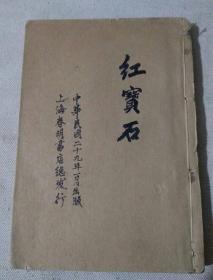 紅寳石
中華民國二十九年一月出版
上海春明書店總發行